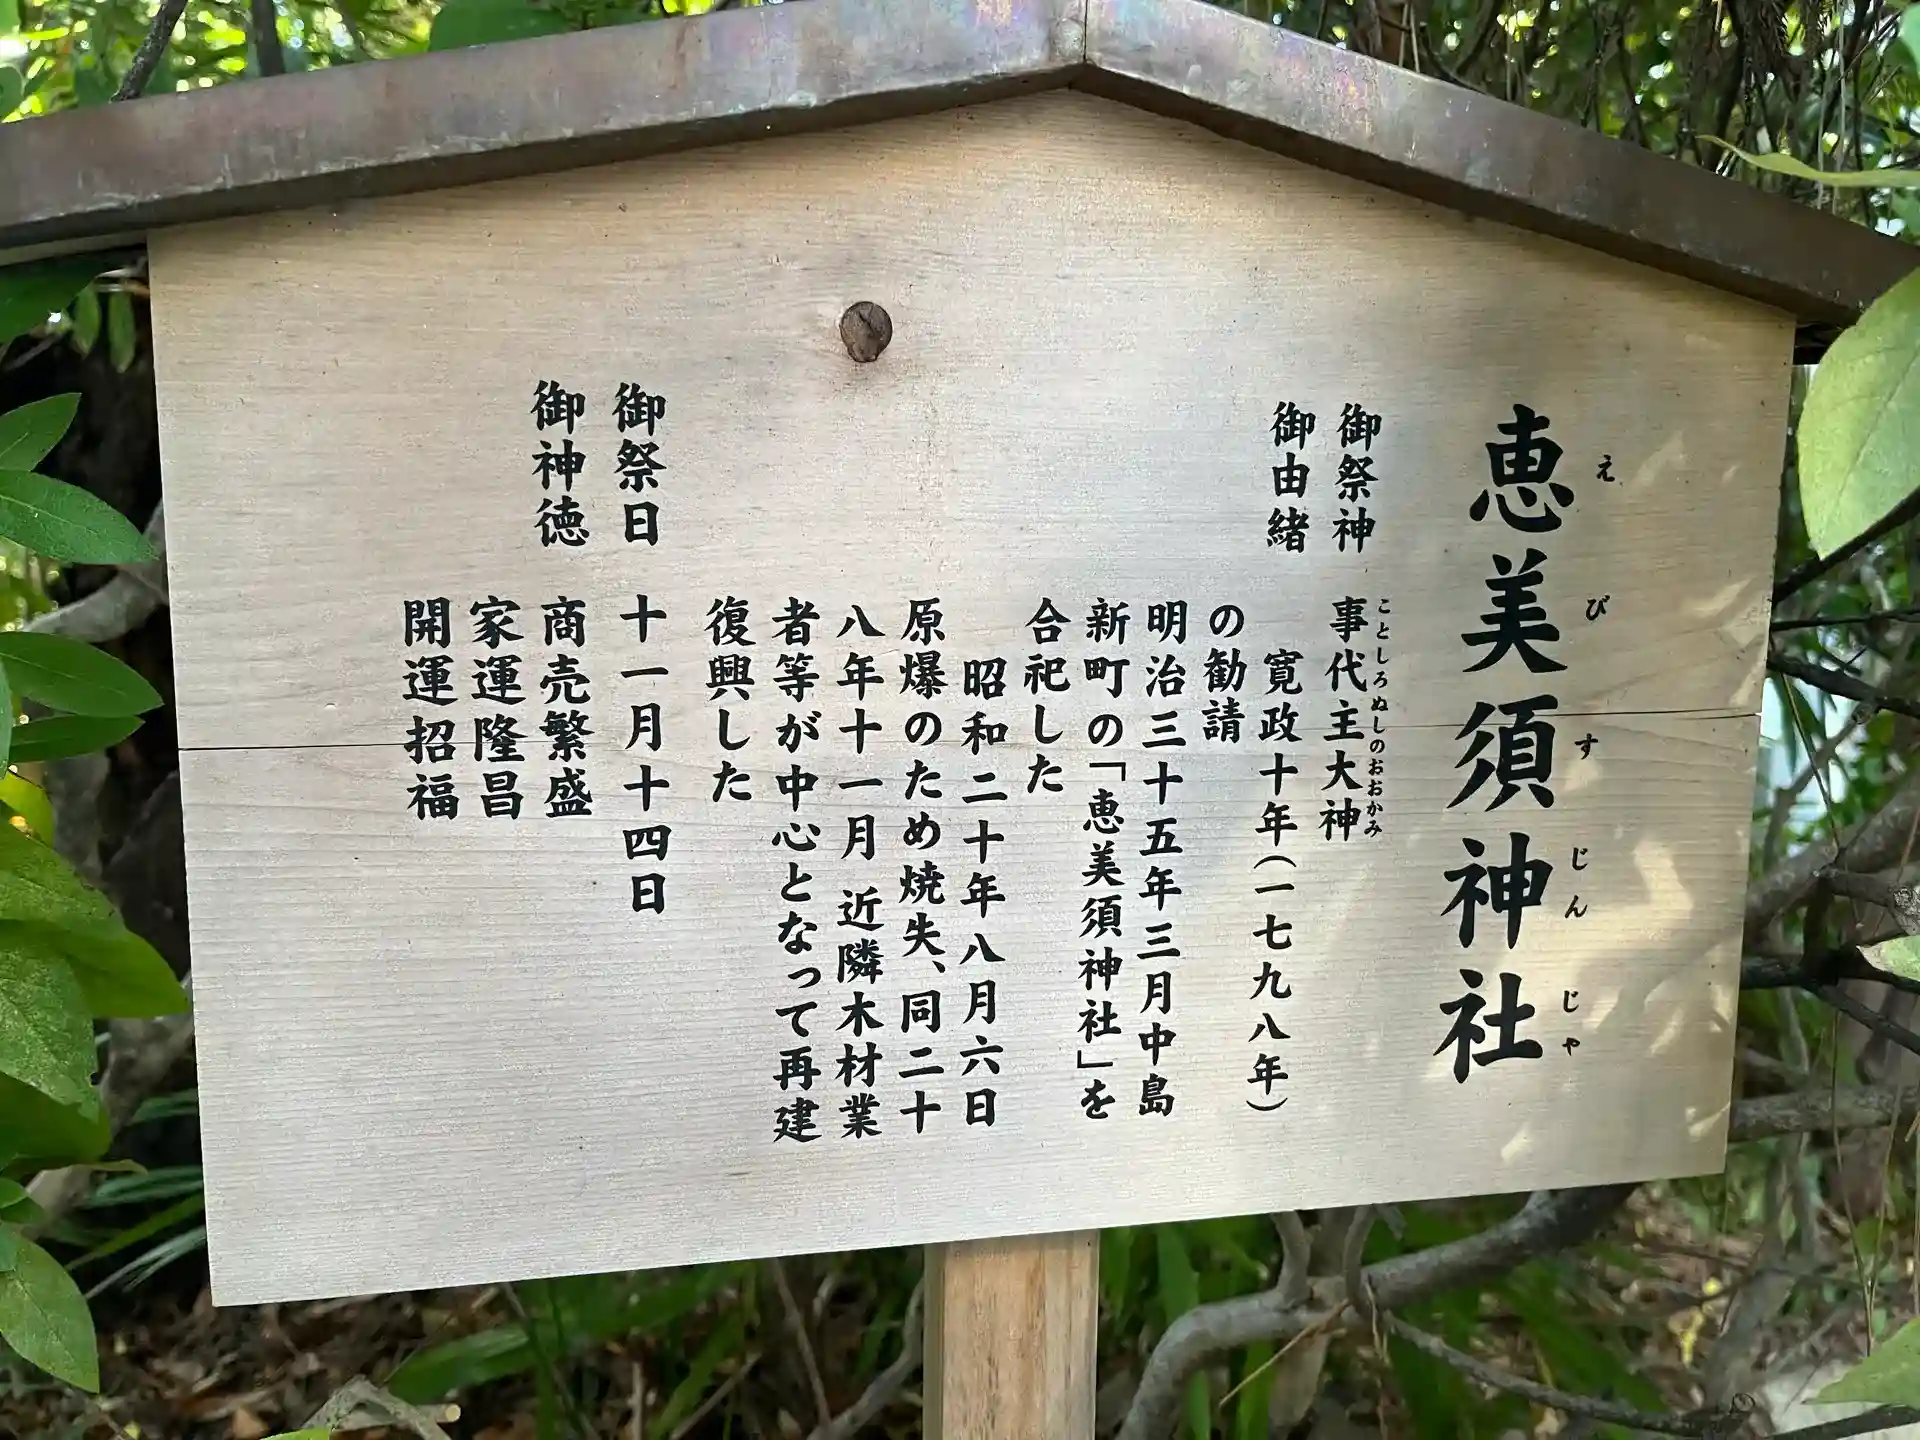 恵美須神社
えびすじんじゃ
御祭神　事代主大神
ことしろぬしのおおかみ
御由緒　寛政十年(一七九八年)
の勧請
明治三十五年三月中島
新町の「恵美須神社」を
合祀した
昭和二十年八月六日
原爆のため焼失、同二十
八年十一月 近隣木材業
者等が中心となって再建
復興した
御祭日　十一月十四日
御神徳　商売繁盛
家運隆昌
開運招福